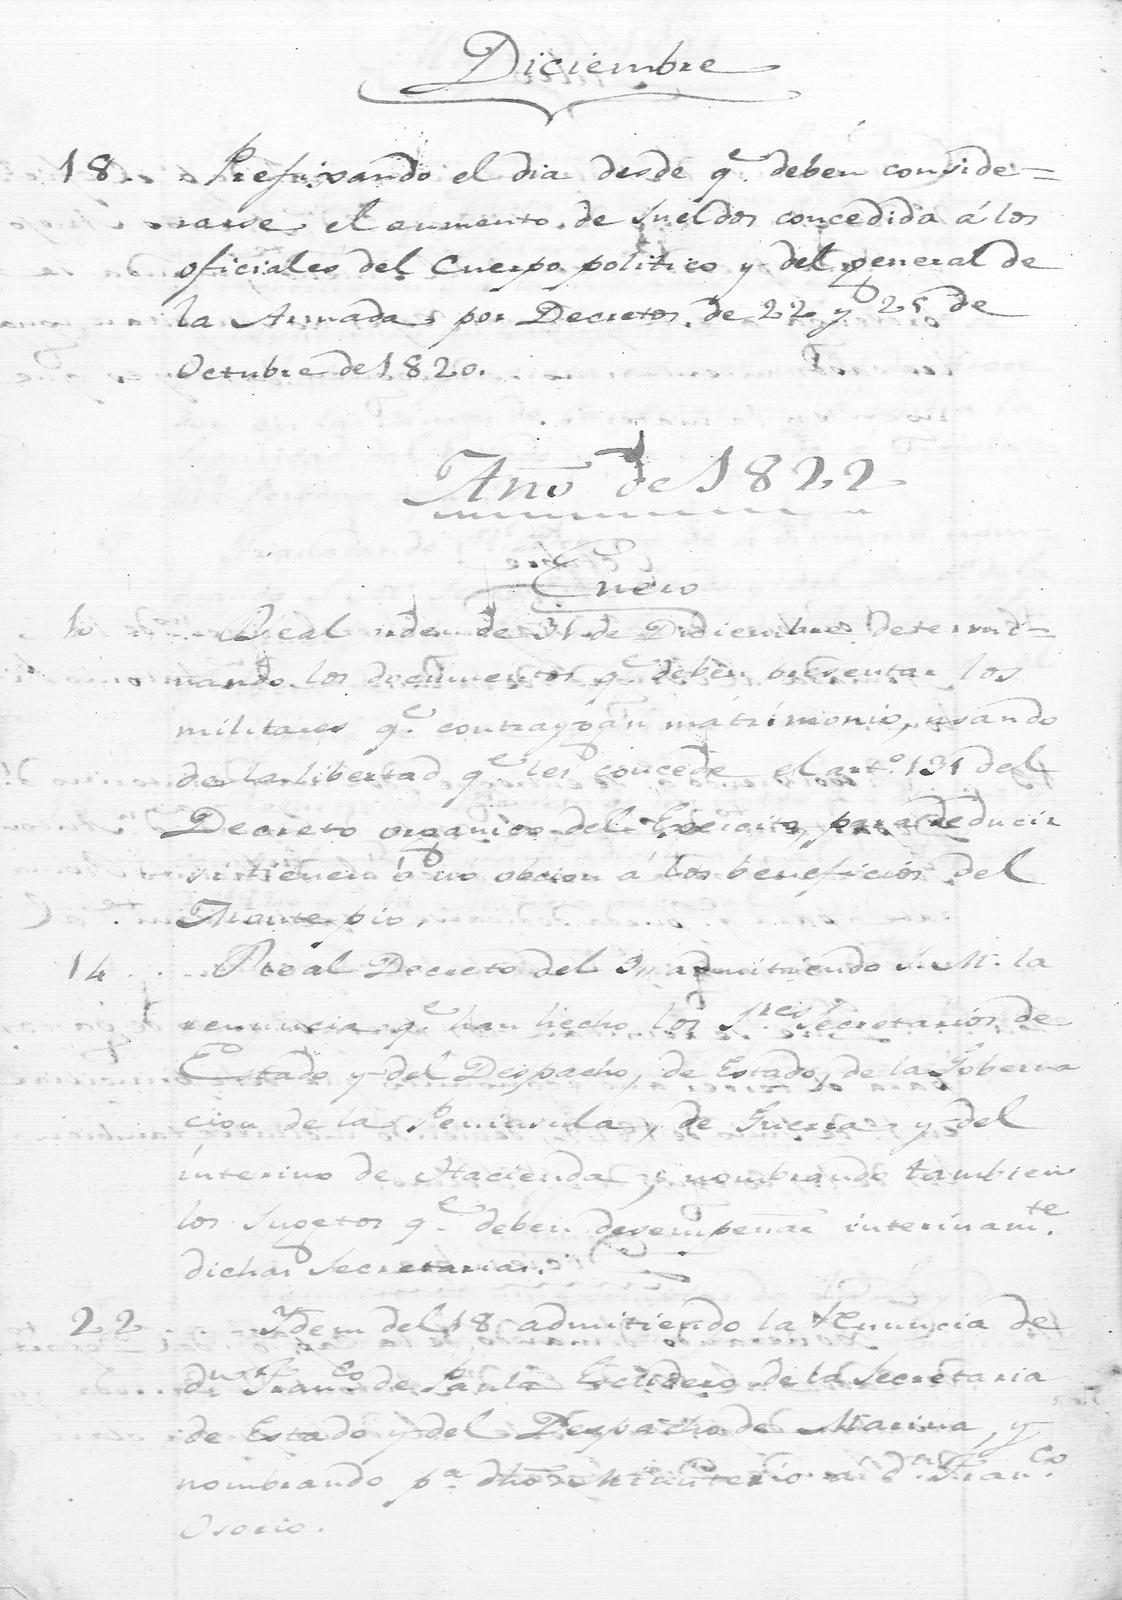 Diciembre
18. Prefixando el dia desde q.e deben conside=
rarse el aumento de sueldos concedida á los
oficiales del Cuerpo politico y del general de
la Armada por Decretos de 22 y 25 de
Octubre de 1820.
Año de 1822
Enero
Real orden de 31 de Diciembre determi=
nando los documentos q.e deben presentar los
militares q.e contraygan matrimonio, usando
de la libertad q.e les concede el art.o 131 del
Decreto organico del Exercito, para deducir
si tienen ó no obcion á los beneficios del
Monte pio.
14 . . . Real Decreto del 9,, admitiendo S. M. la
renuncia q.e han hecho los S.res Secretarios de
Estado y del Despacho, de Estado, de la Goberna
cion de la Peninsula, de Guerra y del
interino de Hacienda, y nombrando tambien
los sugetos q.e deben desempeñar interinam.te
dichas Secretarias.
22 . . . Ydem del 18 admitiendo la renuncia de
d.n Fran.co de Paula Escudero de la Secretaria
de Estado y del Despacho de Marina, y
nombrando p.a dho Ministerio á d.n Fran.co
Osorio.